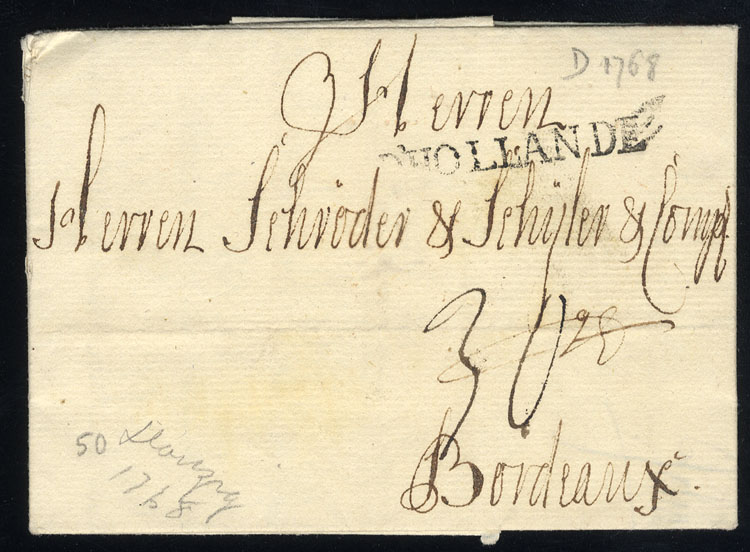 D 1768
Herren
D'HOLLANDE
Herren Schröder & Schÿler & Comp.
30
28
Bordeaux.
50 Danzig
1768